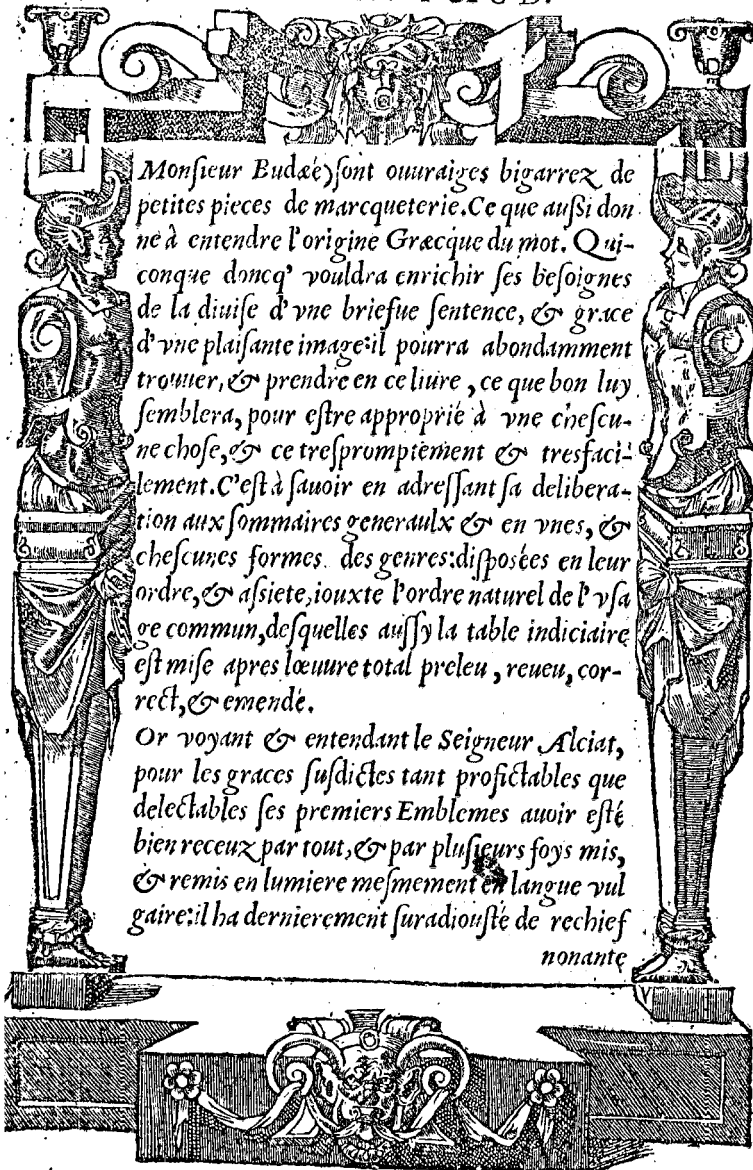 Monſieur Budæe) ſont ouuraiges bigarrez de
petites pieces de marcqueterie. Ce que auſsi don
ne à entendre l'origine Græcque du mot. Qui-
conque doncq' vouldra enrichir ſes beſoignes
de la diuiſe d'vne briefue ſentence, & grace
d'vne plaiſante image: il pourra abondamment
trouuer, & prendre en ce liure, ce que bon luy
ſemblera, pour eſtre approprié à vne cheſcu-
ne choſe, & ce treſpromptement & tresfaci-
lement. C'eſt à ſauoir en adreſſant ſa delibera-
tion aux ſommaires generaulx & en vnes, &
cheſcunes formes des genres: diſpoſées en leur
ordre, & aſsiete, iouxte l'ordre naturel de l'vſa
ge commun, deſquelles auſſy la table indiciaire
eſt miſe apres lœuure total preleu, reueu, cor-
rect, & emendé.
Or voyant & entendant le Seigneur Alciat,
pour les graces ſuſdictes tant profictables que
delectables ſes premiers Emblemes auoir eſté
bien receuz par tout, & par pluſieurs foys mis,
& remis en lumiere meſmement en langue vul
gaire: il ha dernierement ſuradiouſté de rechief
nonante